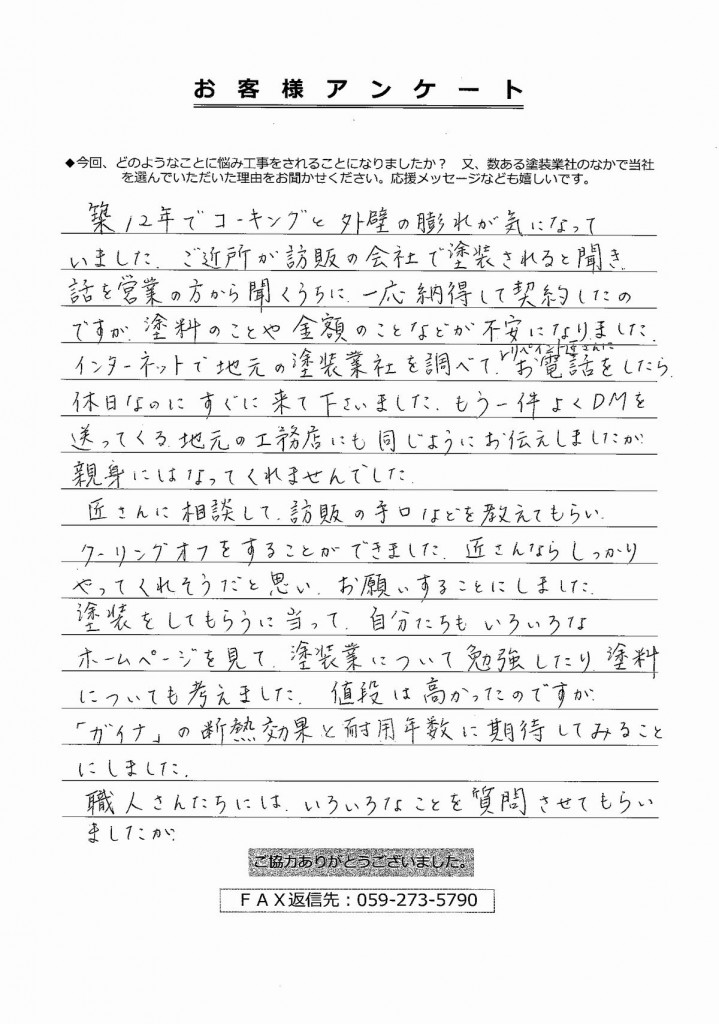 お客様アンケート
◆今回、どのようなことに悩み工事をされることになりましたか？　又、数ある塗装業社のなかで当社
を選んでいただいた理由をお聞かせください。応援メッセージなども嬉しいです。
築12年でコーキングと外壁の膨れが気になって
いました。ご近所が訪販の会社で塗装されると聞き、
話を営業の方から聞くうちに、一応納得して契約したの
ですが、塗料のことや金額のことなどが不安になりました。
リペイント匠さんに
インターネットで地元の塗装業社を調べて、お電話をしたら、
休日なのにすぐに来て下さいました。もう一件よくDMを
送ってくる、地元の工務店にも同じようにお伝えしましたが、
親身にはなってくれませんでした。
匠さんに相談して、訪販の手口などを教えてもらい、
クーリングオフをすることができました。匠さんならしっかり
やってくれそうだと思い、お願いすることにしました。
塗装をしてもらうに当って、自分たちもいろいろな
ホームページを見て、塗装業について勉強したり、塗料
についても考えました。値段は高かったのですが、
「ガイナ」の断熱効果と耐用年数に期待してみること
にしました。
職人さんたちには、いろいろなことを質問させてもらい
ましたが、
ご協力ありがとうございました。
ＦＡＸ返信先：059-273-5790